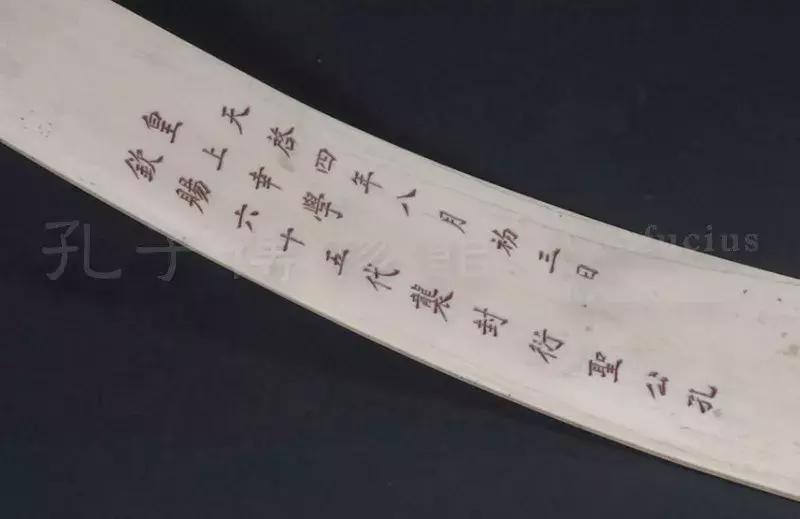 天啓四年八月初三日
皇上幸學
欽賜六十五代襲封衍聖公孔
孔子博物館